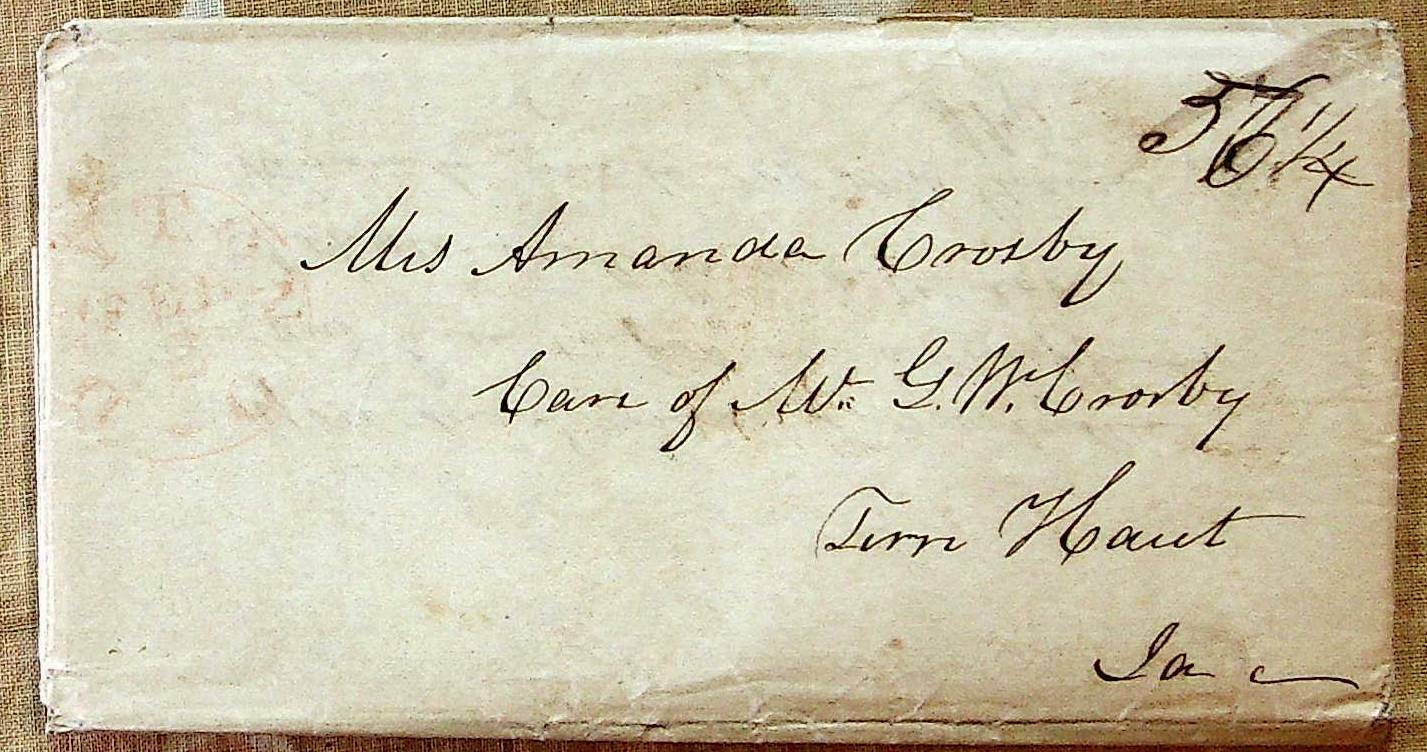 56 1/4
Mrs Amanda Crosby
Care of Mr G. W. Crosby
Terre Haut
Ia